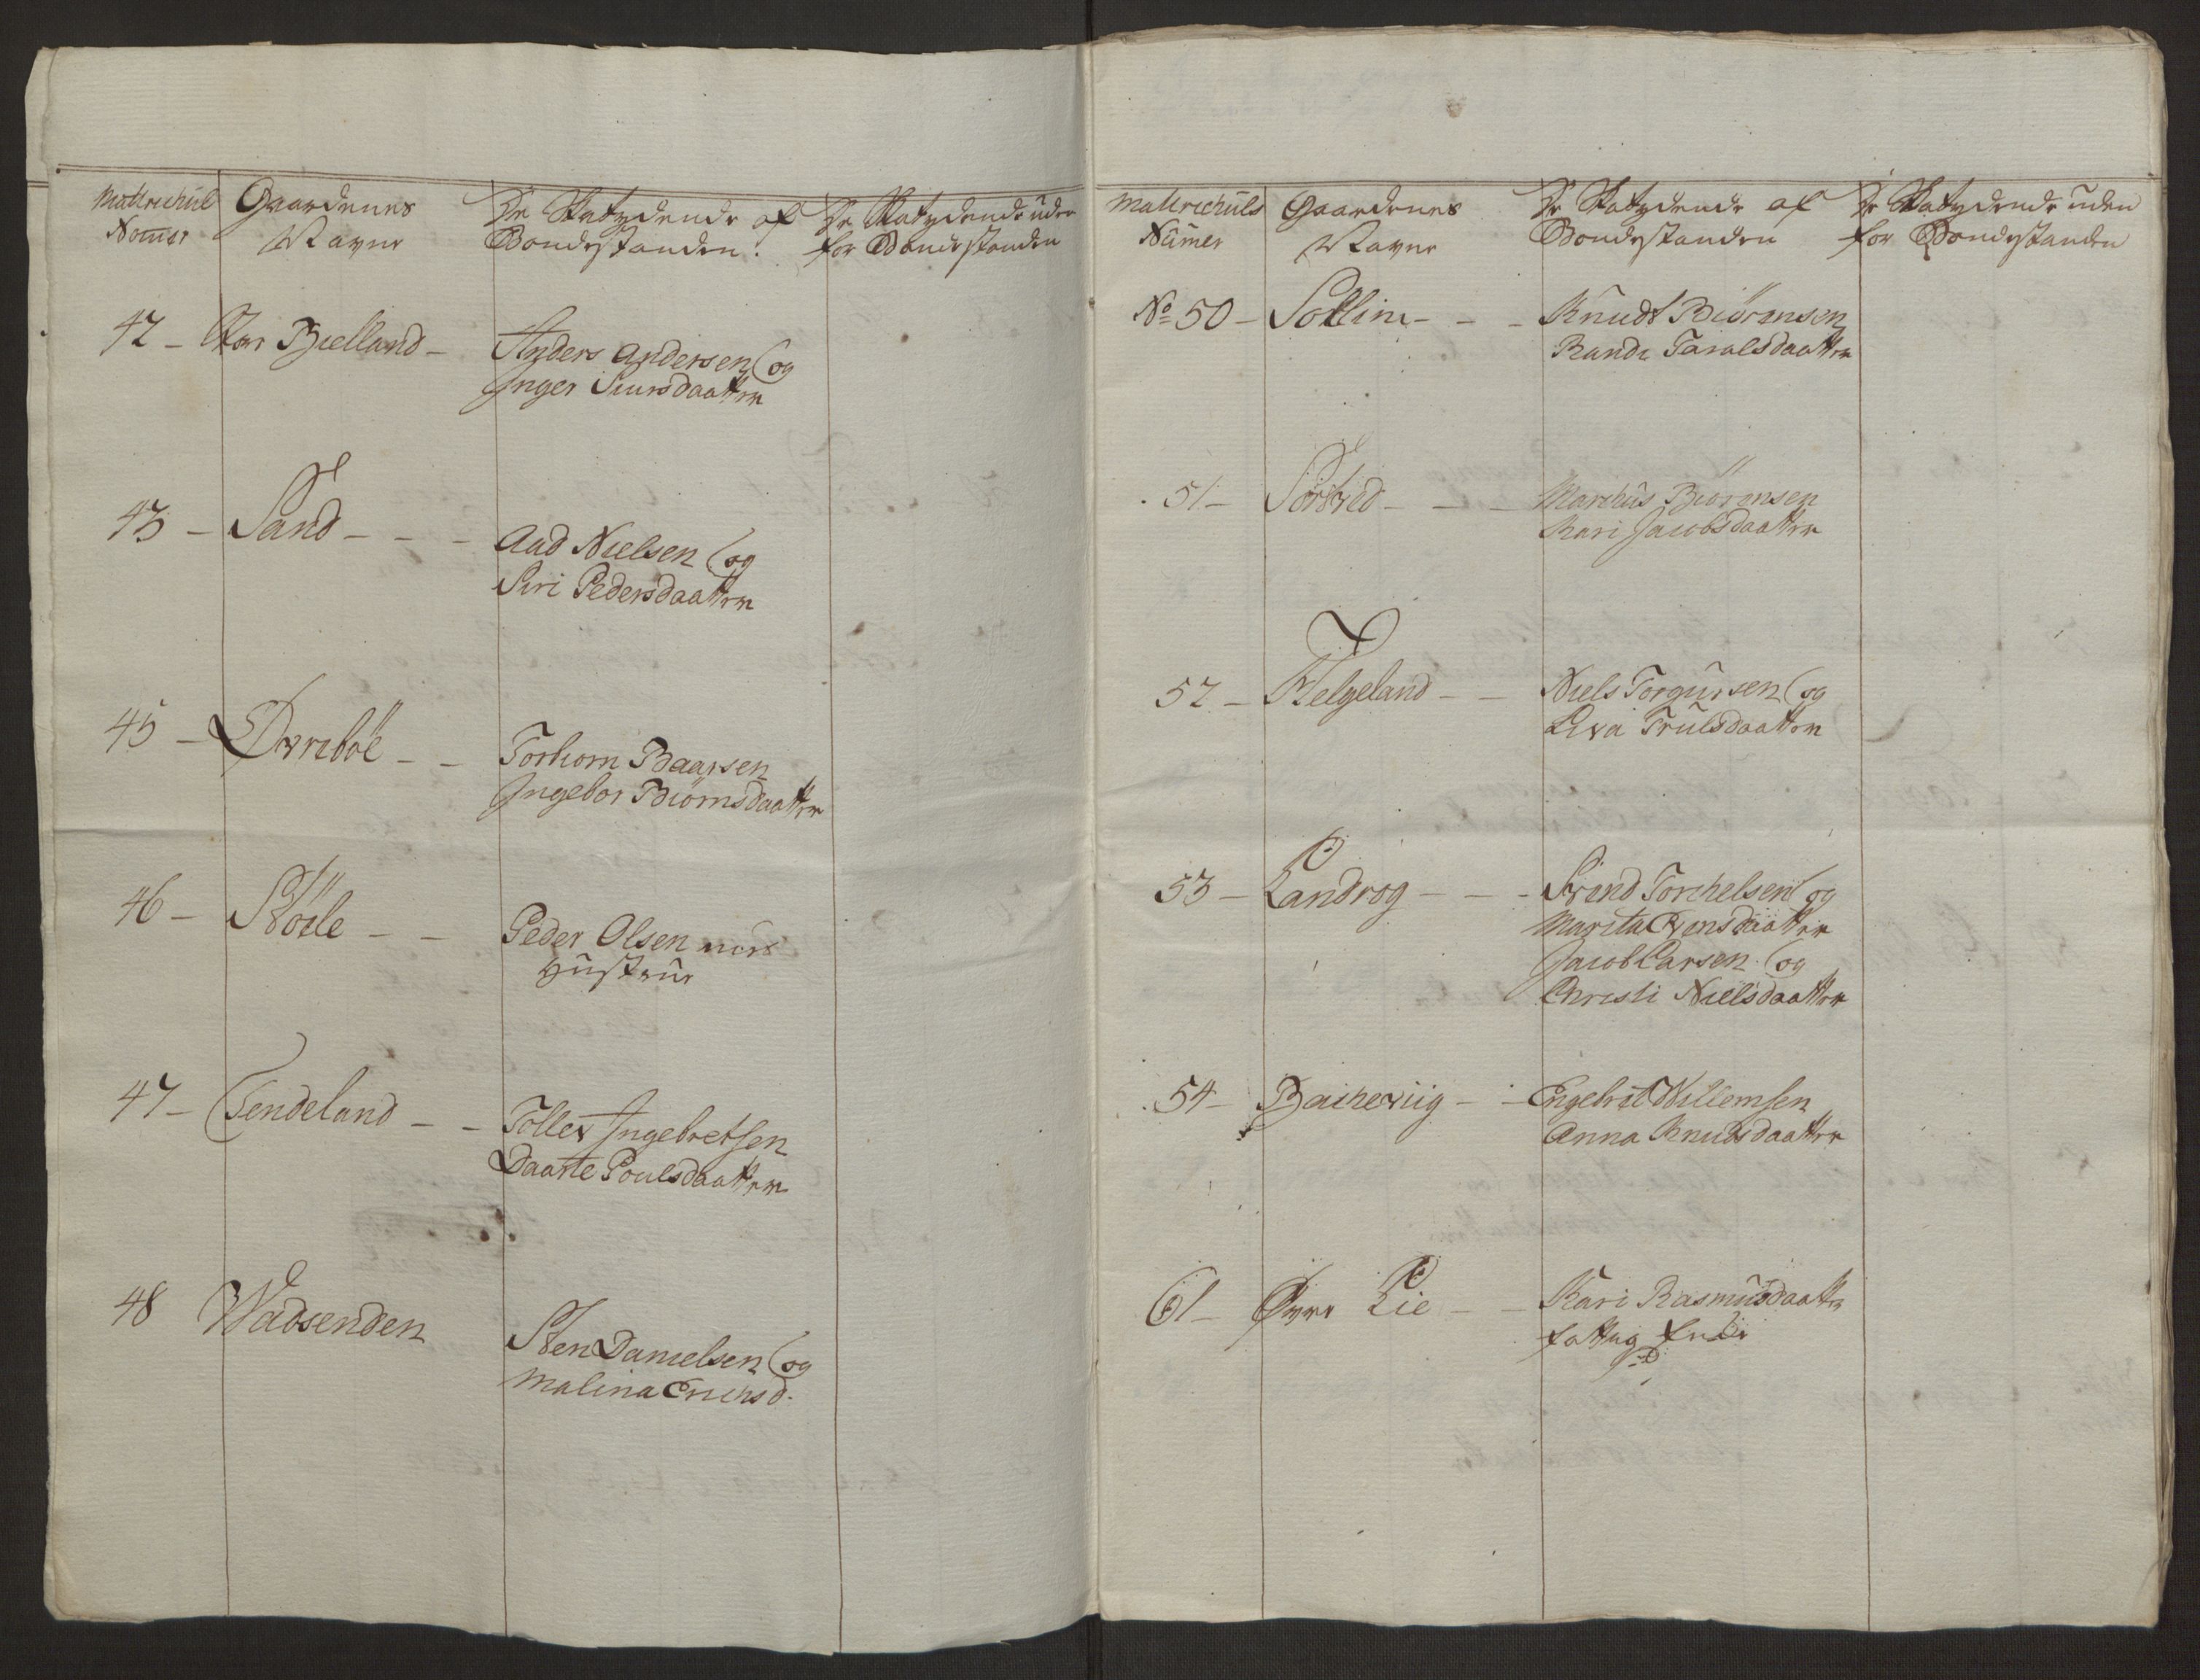 Mattrechul
Nomer
Gaardenes
Navne
De Skatydende af
Bondestanden.
De Skatydende uden
for Bondestanden
42 - Bielland -
Anders Andersen og
Inger Siursdaatter
43 - Sand - - -
Aad Nielsen og
Siri Pedersdaatter
45 - Øvreböe - -
Torkom Baarsen
Ingebor Biörnsdaatter
46 - Stöle - -
Peder Olsen
Hustrue
47 - Tendeland - -
Tollev Ingebretsen
Daarte Poulsdaatter
48 Wadsenden
Sten Danielsen og
Malina Erichsd.
Mattrechuls
Numer
Gaardenes
Navne
De Skatydende af
Bondestanden
De Skatydende uden
for Bondestanden
No 50 - Sollim - - -
Knudt Biörensen
Rande Taralsdaatter
51 - - - -
Marchus Biörensen
Kari Jacobsdaatter
52 - Helgeland - -
Niels Torgiursen og
Siva Trulsdaatter
53 - Landrog - - -
Svend Torchelsen og
Marita Evensdaatter
Jacob Larsen og
Christi Nielsdaatter
54 - Bacheviig - -
Engebret Willemsen
Anna Knudsdaatter
61 - Øvre Lie - -
Kari Rasmusdaatter
fattig Encke